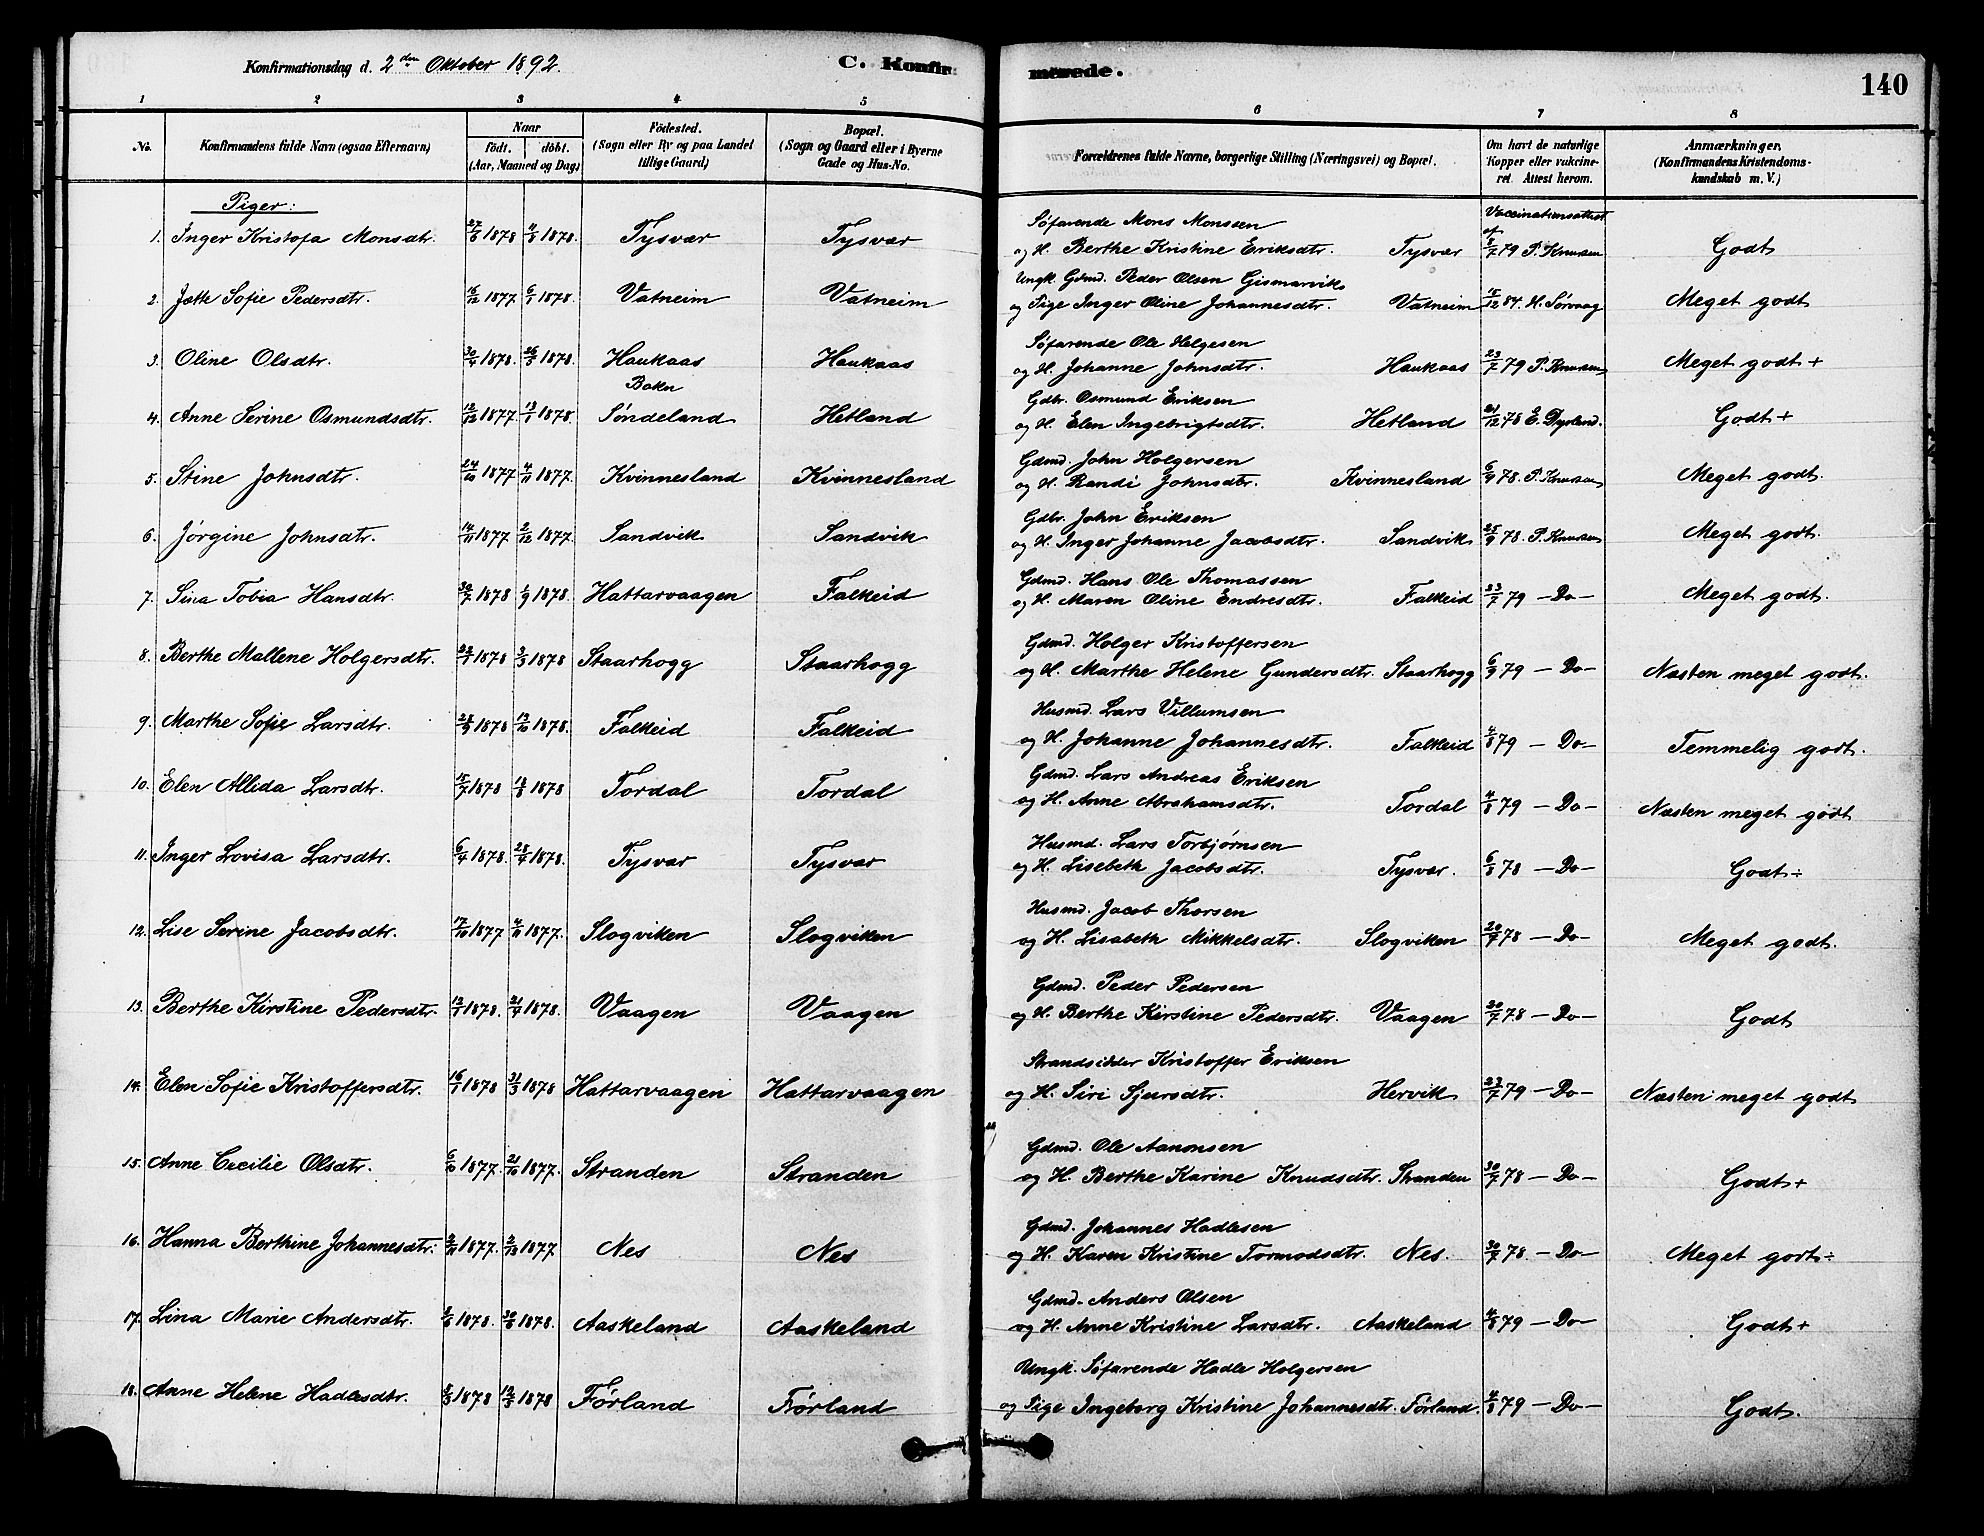 Konfirmationsdag d. 2den Oktober 1892.
C. Konfirmerede.
140
1 2 3 4 5 6 7 8
No. Konfirmandens fulde Navn (ogsaa Efternavn) Naar födt. döbt. (Aar, Maaned og Dag) Födested. (Sogn eller By og paa Landet tillige Gaard) Bopæl. (Sogn og Gaard eller i Byerne Gade og Hus-No. Forældrenes fulde Navne, borgerlige Stilling (Næringsvei) og Bopæl. Om havt de naturlige Kopper eller vakcineret. Attest herom. Anmærkninger. (Konfirmandens Kristendomskundskab m. V.)
Piger:
Søfarende Mons Monssen Vaccinationsattest af
1. Inger Kristofa Monsdtr. 27/6 1878 4/8 1878. Tysvær Tysvær og H. Berthe Kristine Eriksdtr. Tysvær 8/7 79 P. Knutsen Godt
Ungk. Gdmd. Peder Olsen Gismarvik
2. Jette Sofie Pedersdtr. 16/12 1877. 6/1 1878. Vatneim Vatneim og Pige Inger Oline Johannesdtr. Vatneim 15/12 84. H. Sørvaag Meget godt
Søfarende Ole Helgesen
3. Oline Olsdtr. 30/4 1878. 26/5 1878. Haukaas Haukaas og H. Johanne Johnsdtr. Haukaas 23/7 79 P. Knutsen Meget godt +
Bokn Gdbr. Osmund Eriksen
4. Anne Serine Osmundsdtr. 12/12 1877. 13/1 1878. Søndeland Hetland og H. Elen Ingebrigtsdtr. Hetland 21/12 78 E. Dyrland. Godt +
Gdmd. John Holgersen
5. Stine Johnsdtr. 24/10 1877 4/11 1877. Kvinnesland Kvinnesland og H. Randi Johnsdtr. Kvinnesland 6/9 78. P. Knutsen Meget godt.
Gdbr. John Eriksen
6. Jørgine Johnsdtr. 14/11 1877 2/12 1877. Sandvik Sandvik og H. Inger Johanne Jacobsdtr. Sandvik 25/9 78. P. Knutsen Meget godt.
Gdmd. Hans Ole Thomassen
7. Sina Tobia Hansdtr. 30/7 1878 1/9 1878. Hattarvaagen Falkeid og H. Maren Oline Endresdtr. Falkeid 23/7 79 – Do – Meget godt.
Gdmd. Holger Kristoffersen
8. Berthe Mallene Holgersdtr. 22/1 1878 3/3 1878 Staarhogg Staarhogg og H. Marthe Helene Gundersdtr. Staarhogg 6/9 79 – Do – Næsten meget godt.
Husmd. Lars Villumsen
9. Marthe Sofie Larsdtr. 28/9 1878 13/10 1878. Falkeid Falkeid og H. Johanne Johannesdtr. Falkeid 4/8 79 – Do – Temmelig godt.
Gdmd. Lars Andreas Eriksen
10. Elen Allida Larsdtr. 15/7 1878 18/8 1878 Tordal Tordal og H. Anne Abrahamsdtr. Tordal 4/8 79 – Do – Næsten meget godt
Husmd. Lars Torbjørnsen
11. Inger Lovisa Larsdtr. 6/4 1878. 28/4 1878. Tysvær Tysvær og H. Lisebeth Jacobsdtr. Tysvær. 6/8 78 – Do – Godt ÷
Husmd. Jacob Thorsen
12. Lise Serine Jacobsdtr. 17/10 1877 4/11 1877. Slogviken Slogviken og H. Lisabeth Mikkelsdtr. Slogviken 20/7 78 – Do – Meget godt.
Gdmd. Peder Pedersen
13. Berthe Kirstine Pedersdtr. 13/1 1878. 21/4 1878. Vaagen Vaagen og H. Berthe Kirstine Pedersdtr. Vaagen 20/7 78 – Do – Godt
Strandsidder Kristoffer Eriksen
14. Elen Sofie Kristoffersdtr. 16/1 1878 31/3 1878 Hattarvaagen Hattarvaagen og H. Siri Sjursdtr. Hervik 23/7 79 – Do – Næsten meget godt
Gdmd. Ole Aanonsen
15. Anne Cecilie Olsdtr. 6/10 1877. 21/10 1877. Stranden Stranden og H. Berthe Karine Knudsdtr. Stranden 30/7 78 – Do – Godt +
Gdmd. Johannes Hadlesen
16. Hanna Berthine Johannesdtr. 2/11 1877. 2/12 1877 Nes Nes og H. Karen Kristine Tormodsdtr. Nes. 30/7 78. – Do – Meget godt ÷
Gdmd. Anders Olsen
17. Lina Marie Andersdtr. 1878. 30/6 1878. Aaskeland Aaskeland og H. Anne Kristine Larsdtr. Aaskeland 4/8 79 – Do – Godt +
Ungk. Søfarende Hadle Holgersen
18. Anne Helene Hadlesdtr. 1878 12/5 1878 Førland Førland og Pige Ingeborg Kristine Johannesdtr. Førland. 4/8 79 – Do – Godt.